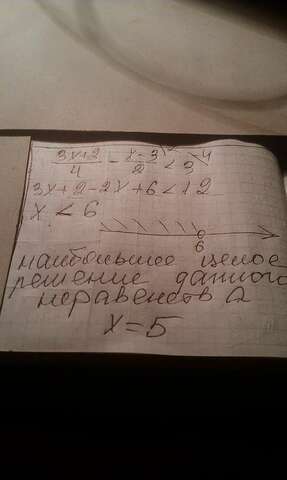 (3x+2)/4 - (x-3)/2 \2 < 3 \4
3x+2-2x+6<12
x < 6
6
наибольшее целое
решение данного
неравенства
x=5